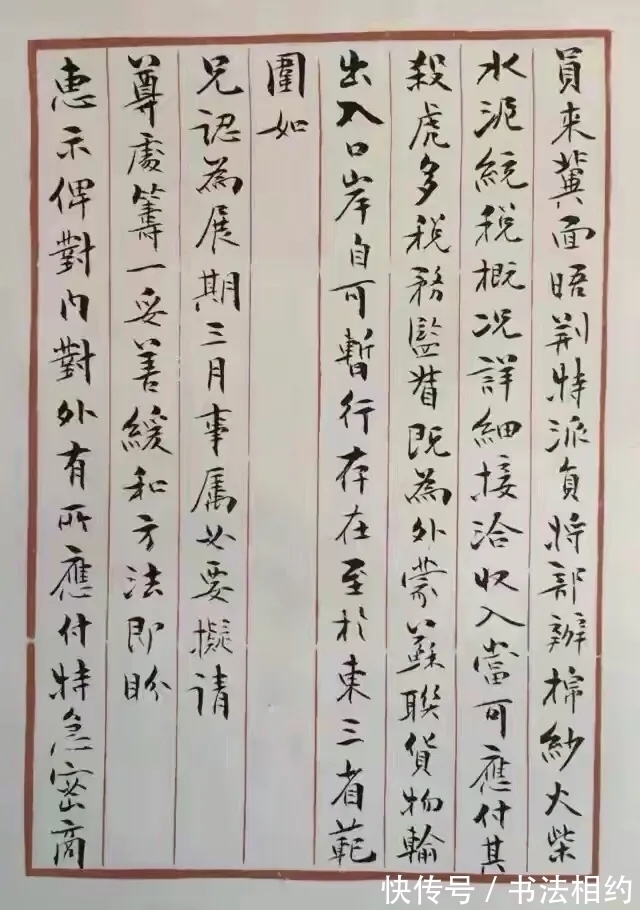 員來冀面晤荆特派員將部辦棉紗火柴
水泥統稅概况詳細接洽收入當可應付其
殺虎多稅務監督既為外蒙蘇聯貨物輸
出入口岸自可暫行存在至於東三省範
圍如
兄認為展期三月事属必要擬請
尊處籌一妥善緩和方法即盼
惠示俾對内對外有所應付特急密商
快传号 / 书法相约